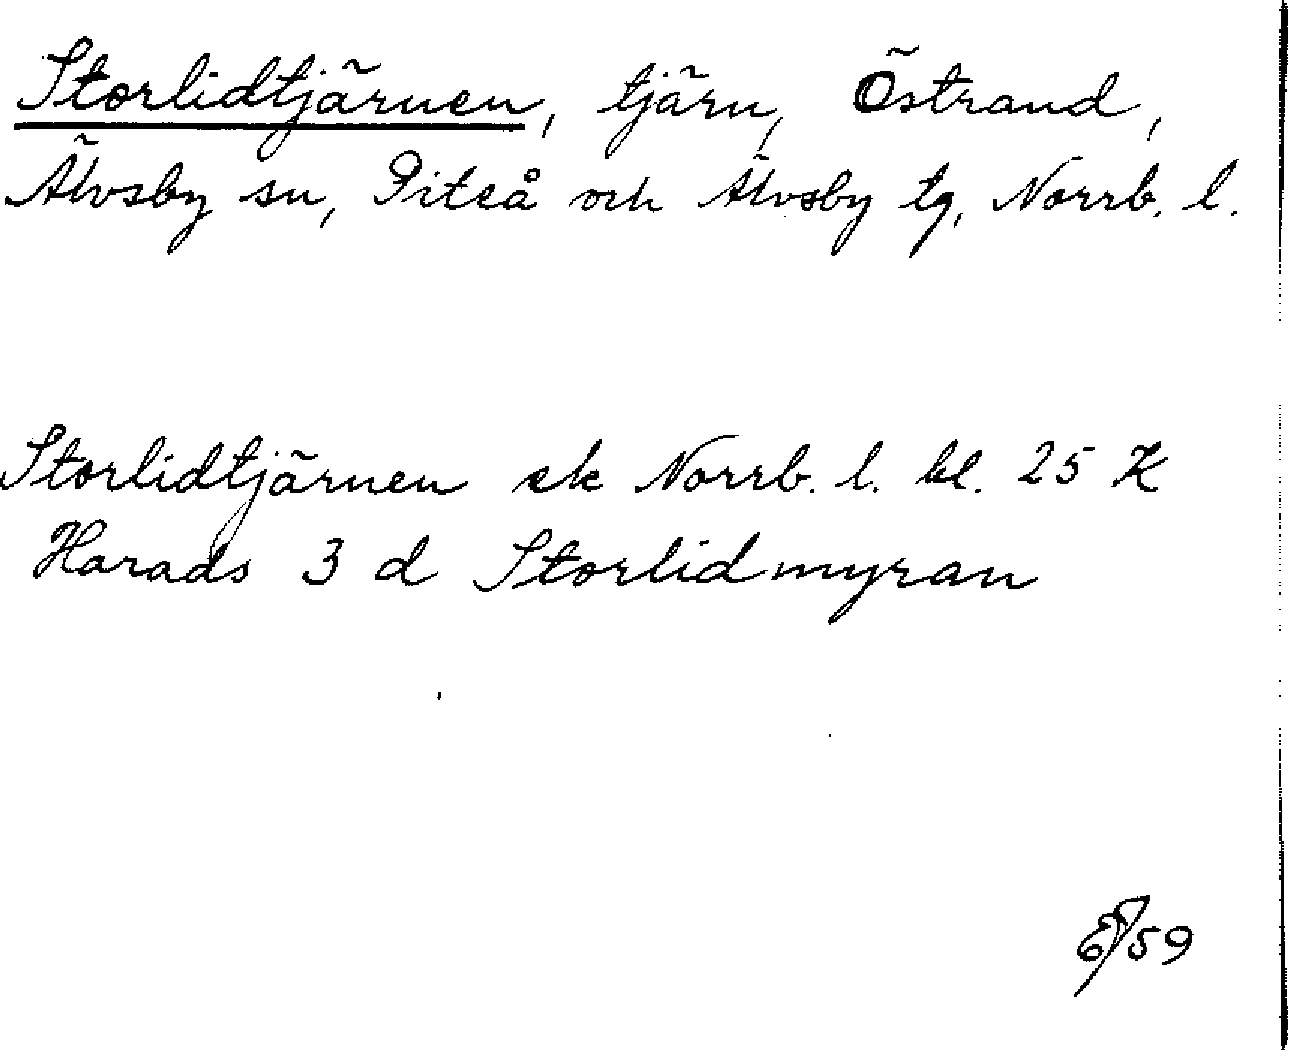 Storlidtjärnen, tjärn, Östrand,
Älvsby sn, Piteå och Älvsby tg, Norrb. l.
Storlidtjärnen ek Norrb. l. bl. 25 K
Harads 3 d Storlidmyran
59